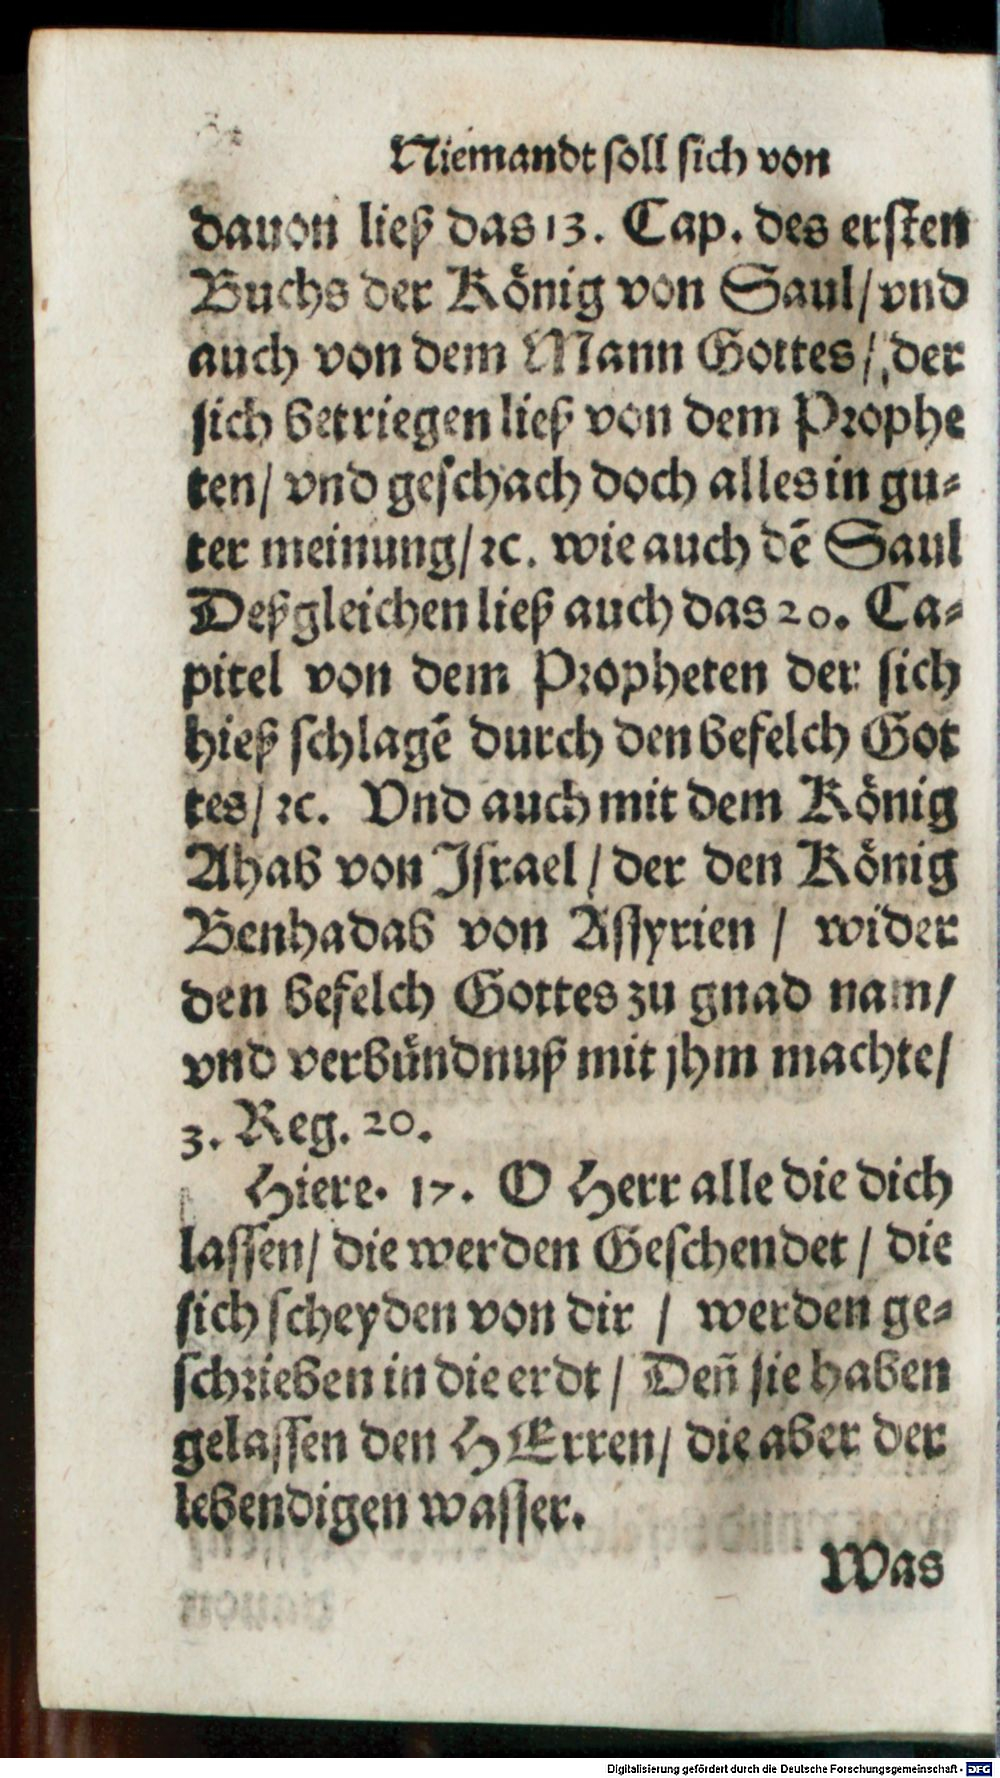 Niemandt soll sich von
dauon ließ das 13. Cap. des ersten
Buchs der König von Saul/ vnd
auch von dem Mann Gottes/ der
sich betriegen ließ von dem Prophe
ten/ vnd geschach doch alles in gu⸗
ter meinung/ ꝛc. wie auch dē Saul
Deßgleichen ließ auch das 20. Ca⸗
pitel von dem Propheten der sich
hieß schlagē durch den befelch Got
tes/ ꝛc. Vnd auch mit dem König
Ahab von Israel / der den König
Benhadab von Assyrien / wider
den befelch Gottes zu gnad nam/
vnd verbündnuß mit jhm machte/
3. Reg. 20.
Hiere. 17. O Herr alle die dich
lassen/ die werden Geschendet / die
sich scheyden von dir / werden ge⸗
schrieben in die erdt / Deñ sie haben
gelassen den HErren/ die aber der
lebendigen wasser.
Was
Digitalisierung gefördert durch die Deutsche Forschungsgemeinschaft - DFG